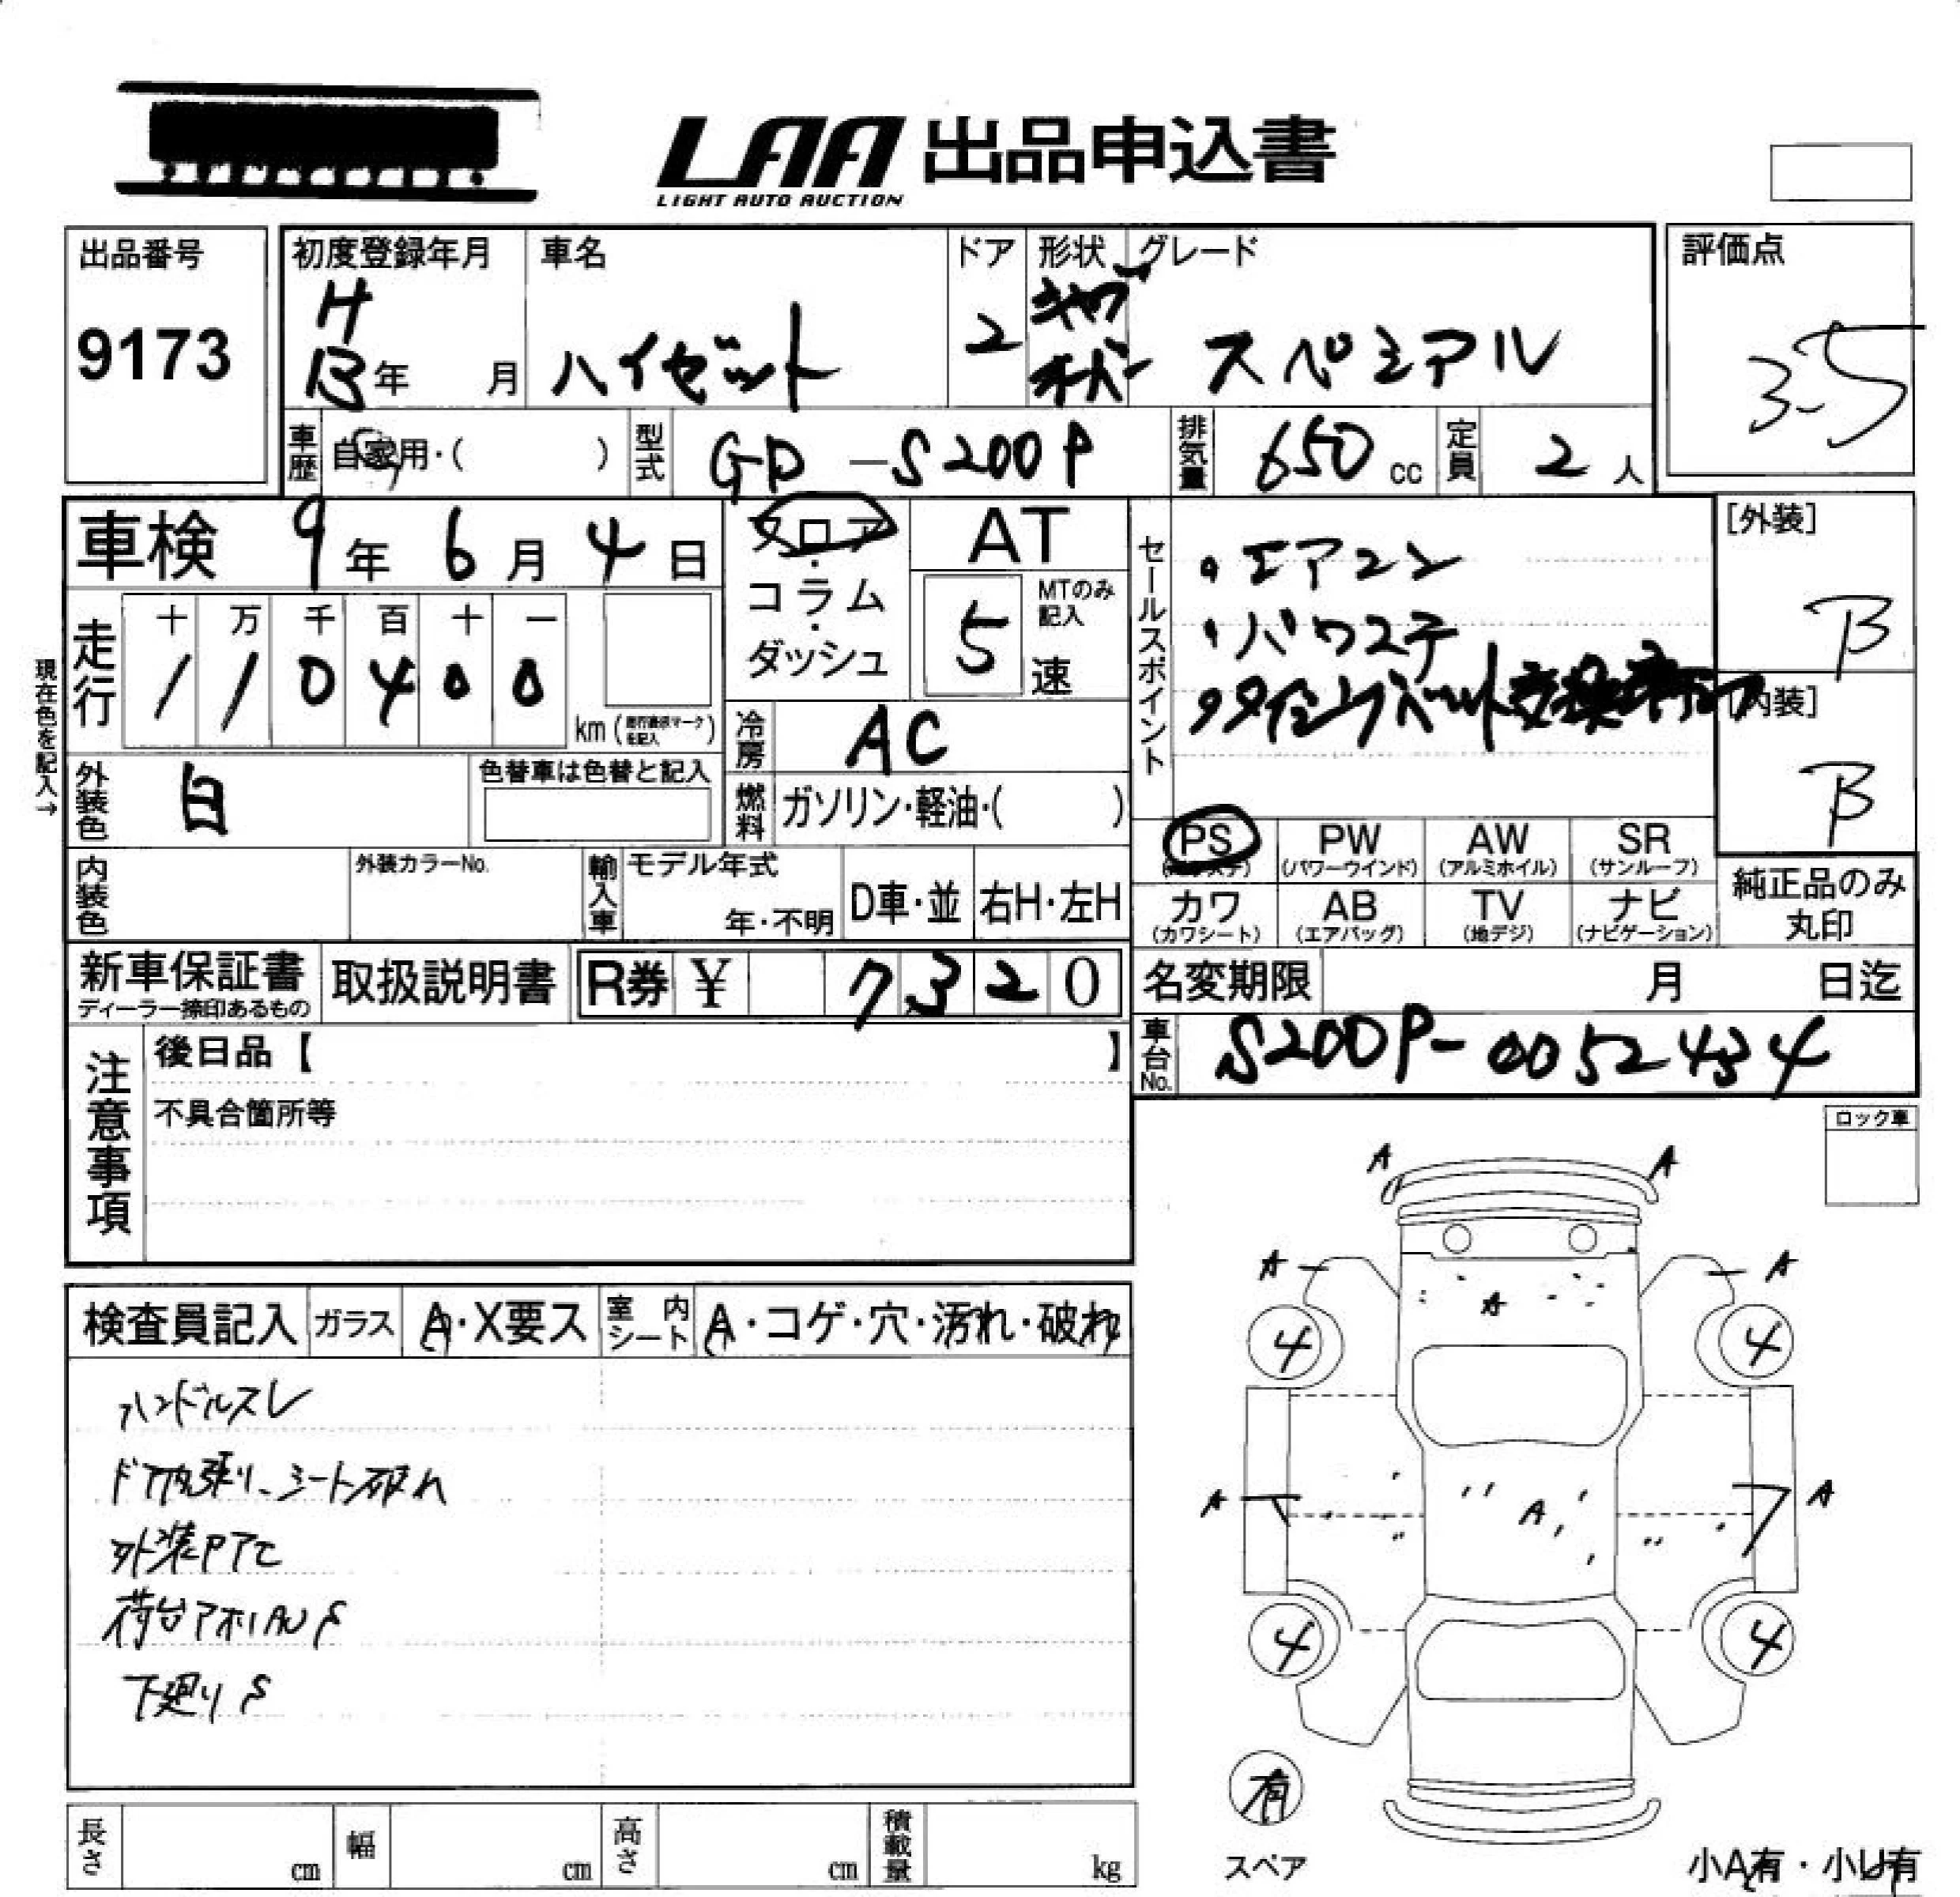 LAA 出品申込書
LIGHT AUTO AUCTION
出品番号
9173
初度登録年月
H
13年 月
車名
ハイゼット
ドア
2
形状
キャブ
オーバー
グレード
スペシアル
評価点
3.5
車歴
自家用・( )
型式
GD-S200P
排気量
650 cc
定員
2 人
車検 9年 6月 4日
フロア・コラム・ダッシュ
AT
5
MTのみ記入
速
セールスポイント
・エアコン
・パワステ
・タイミングベルト交換済み
[外装]
B
[内装]
B
現在色を記入→
走行
十 万 千 百 十 一
1 1 0 4 0 0
km
冷房
AC
外装色
白
色替車は色替と記入
燃料
ガソリン・軽油・( )
PS
PW (パワーウインド)
AW (アルミホイル)
SR (サンルーフ)
カワ (カワシート)
AB (エアバッグ)
TV (地デジ)
ナビ (ナビゲーション)
純正品のみ
丸印
内装色
外装カラーNo.
輸入車
モデル年式
年・不明
D車・並
右H・左H
新車保証書
ディーラー捺印あるもの
取扱説明書
R券 ¥ 7,320
名変期限 月 日迄
車台No.
S200P-0052434
注意事項
後日品【 】
不具合箇所等
ロック車
検査員記入
ガラス
A・X要ス
室内シート
A・コゲ・穴・汚れ・破れ
ハンドルスレ
ドア内張り、シート破れ
外装PアC
荷台アオリAUS
下廻りS
A A
A A
A
4 4
A A
A
4 4
有
スペア
小A有・小U有
長さ cm
幅 cm
高さ cm
積載量 kg